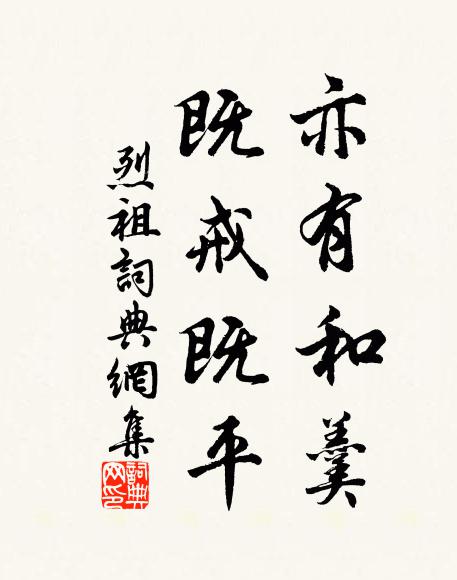 亦有和羹
既戒既平
烈祖詞典網集
詞典网印